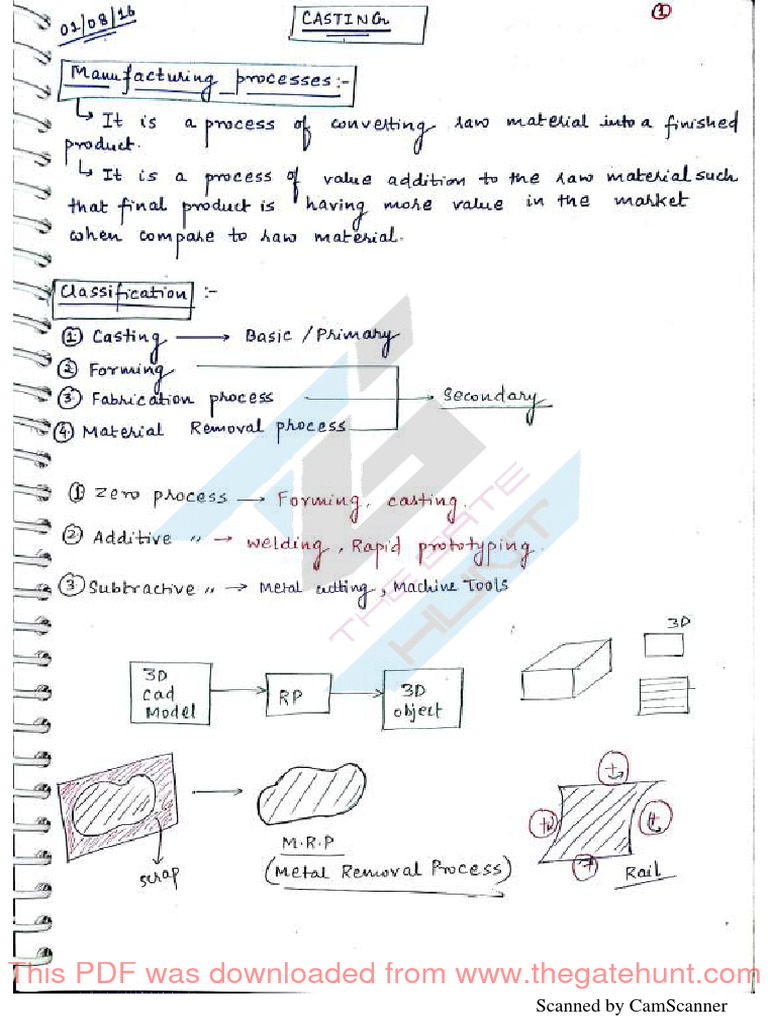 02/08/16
CASTING
1
Manufacturing processes:-
↳ It is a process of converting raw material into a finished
product.
↳ It is a process of value addition to the raw material such
that final product is having more value in the market
when compare to raw material.
Classification :-
① Casting → Basic / Primary
② Forming
③ Fabrication process → Secondary
④ Material Removal process
① Zero process → Forming, casting.
② Additive " → welding, Rapid prototyping.
③ Subtractive " → Metal cutting, Machine Tools
THE GATE
HUNT
3D
3D
cad
Model
RP
3D
object
scrap
M.R.P
(Metal Removal Process)
Rail
This PDF was downloaded from www.thegatehunt.com
Scanned by CamScanner